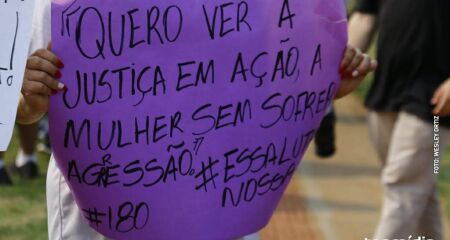 "QUERO VER A
JUSTIÇA EM AÇÃO, A
MULHER SEM SOFRER
AGRESSÃO."
#ESSALUT
NOSSA
#180
FOTO: WESLEY ORTIZ